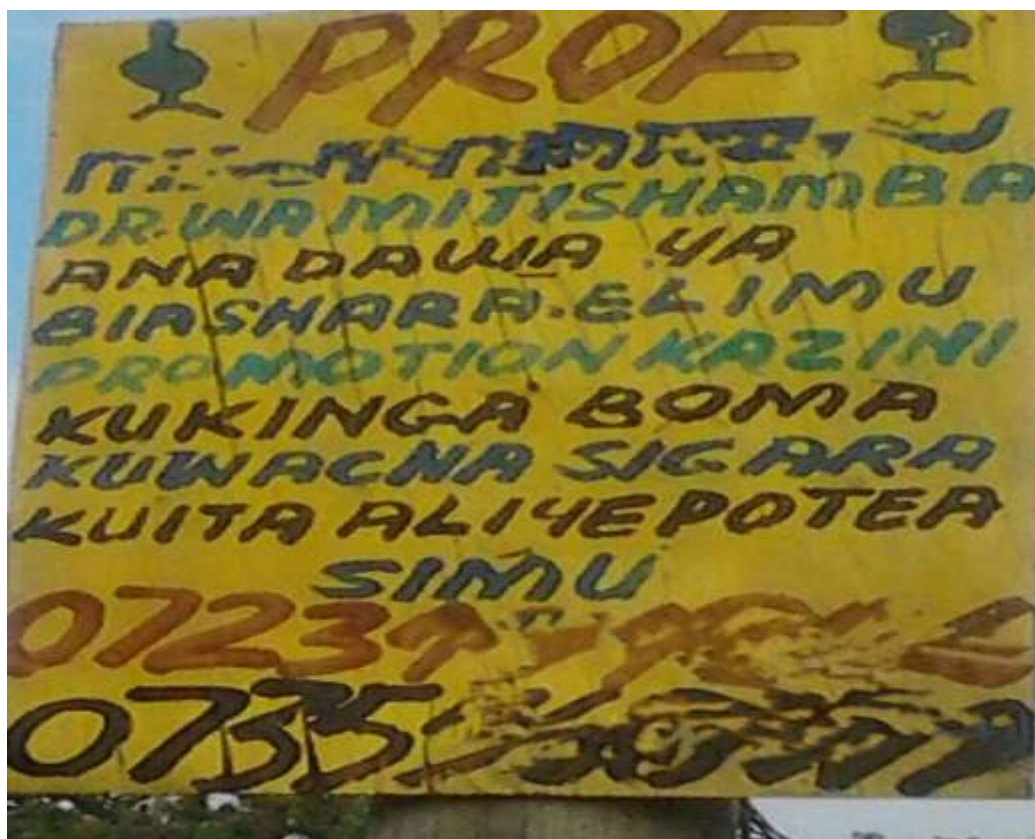 PROF
DR. WA MITISHAMBA
ANA DAWA YA
BIASHARA. ELIMU
PROMOTION KAZINI
KUKINGA BOMA
KUWACHA SIGARA
KUITA ALIYEPOTEA
SIMU